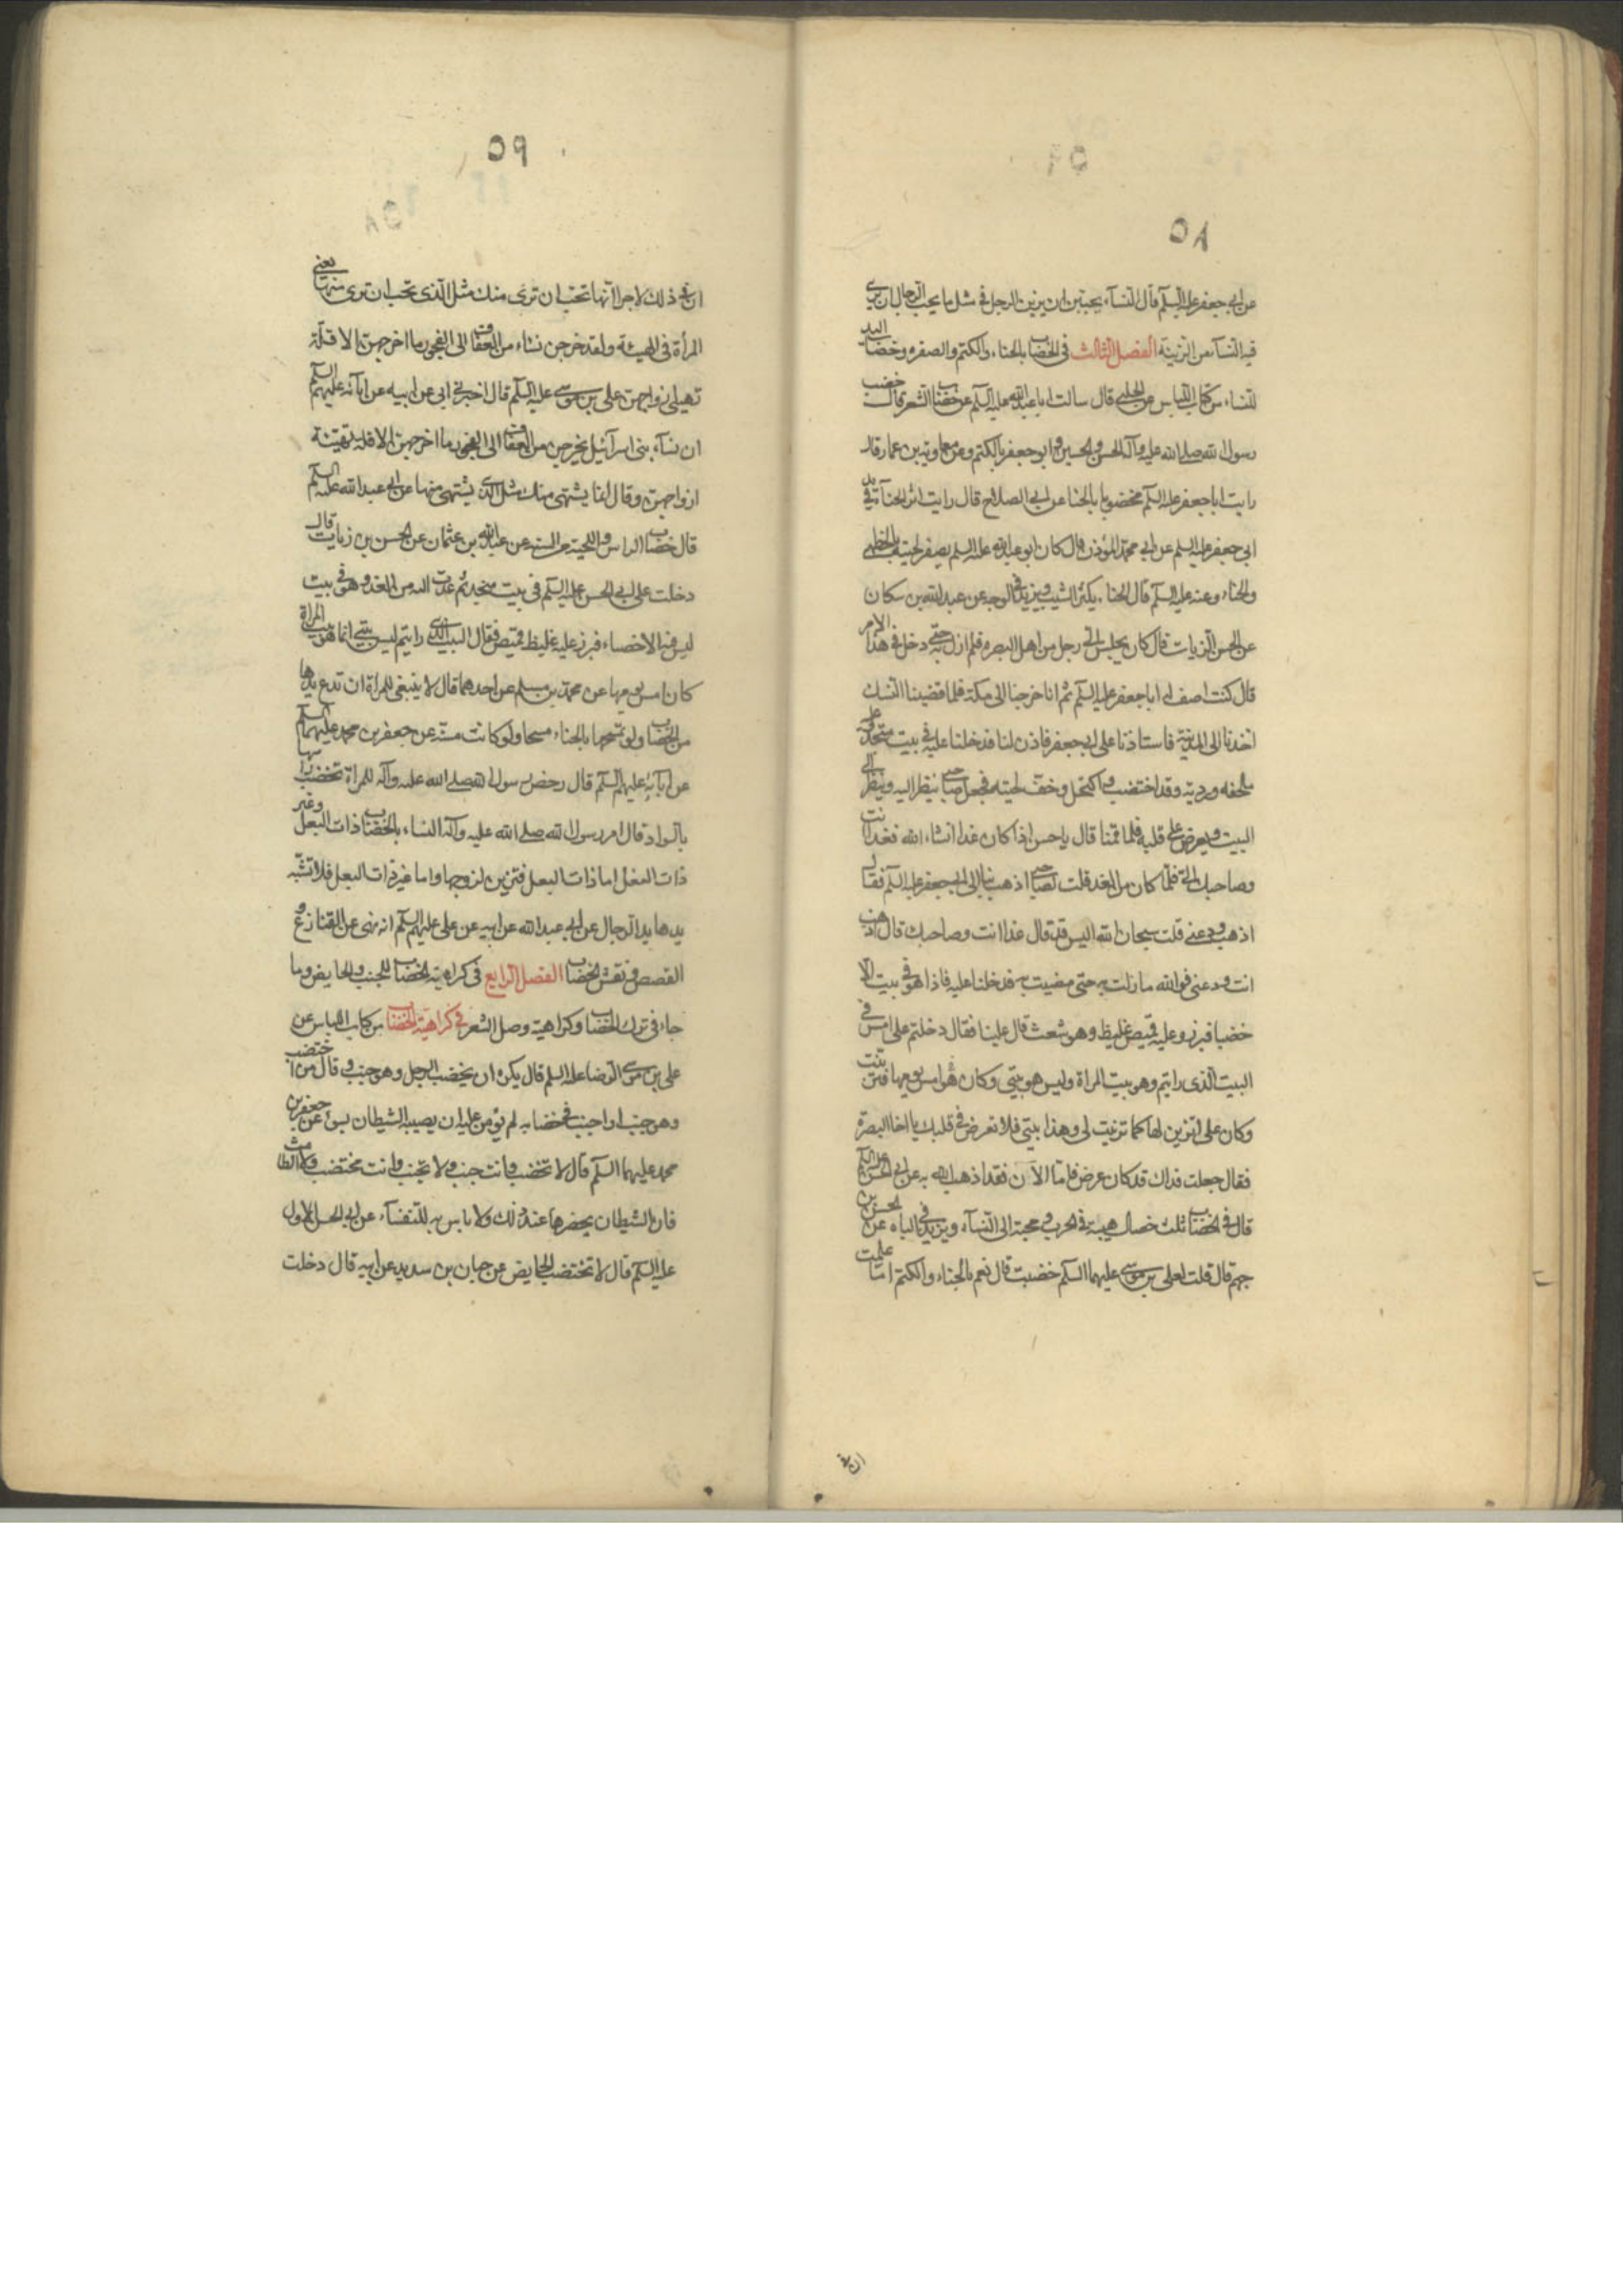 ٥٨
عن ابى جعفر عليه السلم قال النسآء يحببن ان يرين الرجل فى مثل ما يحب الرجال ان يرى
فيه النسآء من الزينة الفصل الثالث فى الخضاب بالحناء والكتم والصفره وخضاب اليد
للنساء من كتاب اللباس عن الحلبى قال سالت ابا عبدالله عليه السلم عن خضاب الشعر قال خضب
رسول الله صلى الله عليه وآله والحسن والحسين وابو جعفر بالكتم وعن معاوية بن عمار قال
رايت ابا جعفر عليه السلم مخضوبا بالحنا عن ابى الصلاح قال رايت اثر الحنآء فى يد
ابى جعفر عليه السلم عن ابى محمد المؤذن قال كان ابو عبدالله عليه السلم يصفر لحيته بالخطمى
والحناء وعنه عليه السلم قال الحناء يكثر الشيب ويزيد فى الوجه عن عبدالله بن سكان
عن الحسن الزيات قال كان يجلس الى رجل من اهل البصره فلم ازل به حتى دخل فى هذا الامر
قال كنت اصف له ابا جعفر عليه السلم ثم انا خرجنا الى مكة فلما قضينا النسك
اخذنا الى المدينة فاستاذنا على ابى جعفر فاذن لنا فدخلنا عليه فى بيت منجد وعليه
ملحفه وردية وقد اختضب واكتحل وخف لحيته فجعل صاحبى ينظر اليه وينظر الى
البيت ويعرض على قلبه فلما قمنا قال يا حسن اذا كان غدا انشاء الله فغد انت
وصاحبك الى فلما كان من الغد قلت لصاحبى اذهب بنا الى ابى جعفر عليه السلم فقال
اذهب ودعنى قلت سبحان الله اليس قد قال غدا انت وصاحبك قال اذهب
انت ودعنى فوالله ما زلت به حتى مضيت به فدخلنا عليه فاذا هو فى بيت الا
خضبا فبرز وعليه قميص غليظ وهو شعث قال علينا فقال دخلتم على امس فى
البيت الذى رايتم وهو بيت المراة وليس هو بيتى وكان هو امس يومها فتزينت
وكان على اتزين لها كما تزينت لى وهذا بيتى فلا تعرض فى قلبك يا اخا البصرة
فقال جعلت فداك قد كان عرض فاما الآن فقد اذهب الله به عن ابى الحسن عليه السلم
قال فى الخضاب ثلث خصال هيبة فى الحرب ومحبة الى النسآء ويزيد فى الباه عن الحسن بن
جهم قال قلت لعلى بن موسى عليهما السلم خضبت قال نعم بالحناء والكتم اما علمت
ان فى
٥٩
ان فى ذلك لاجرا انها تحب ان ترى منك مثل الذى تحب ان ترى منها يعنى
المرأة فى الهيئة ولقد خرجن نساء من العفاف الى الفجور ما اخرجهن الا قلة
تهيئ ازواجهن على بن موسى عليه السلم قال اخبرنى ابى عن ابيه عن ابآئه عليهم السلم
ان نسآء بنى اسرآئيل خرجن من العفاف الى الفجور ما اخرجهن الا قله تهيئة
ازواجهن وقال انما يشتهى منك مثل الذى يشتهى منها عن ابى عبدالله عليه السلم
قال خضاب الراس واللحية من السنه عن عبدالله بن عثمان عن الحسن بن زيات قال
دخلت على ابى الحسن عليه السلم فى بيت منجد ثم عدت اليه من الغد وهو فى بيت
ليس فيه الا خصاء فبرز عليه غليظ قميص فقال البيت الذى رايتم ليس بيتى انما هو بيت المراة
كان امس يومها عن محمد بن مسلم عن احدهما قال لا ينبغى للمراة ان تدع يدها
من الخضاب ولو تمسحها بالحناء مسحا ولو كانت مسنة عن جعفر بن محمد عليهما السلم
عن ابآئه عليهم السلم قال رخص رسول الله صلى الله عليه وآله للمراة تخضب راسها
بالسواد قال امر رسول الله صلى الله عليه وآله النساء بالخضاب ذات البعل وغير
ذات البعل اما ذات البعل فتزين لزوجها واما غير ذات البعل فلا تشبه
يدها يد الرجال عن ابى عبدالله عن ابيه عن على عليهم السلم انه نهى عن القنازع و
القصص ونقش الخضاب الفصل الرابع فى كراهية الخضاب للجنب والحايض وما
جاء فى ترك الخضاب وكراهية وصل الشعر فى كراهية الخضاب من كتاب اللباس عن
على بن موسى الرضا عليه السلم قال يكره ان يخضب الرجل وهو جنب وقال من اختضب
وهو جنب او اجنب فى خضابه لم يؤمن عليه ان يصيبه الشيطان بسوء عن جعفر بن
محمد عليهما السلم قال لا تخضب وانت جنب ولا تجنب وانت مختضب ولا الطامث
فان الشيطان يحضرها عند ذلك ولا باس به للنفسآء عن ابى الحسن الاول
عليه السلم قال لا تختضب الحايض عن حبان بن سدير عن ابيه قال دخلت